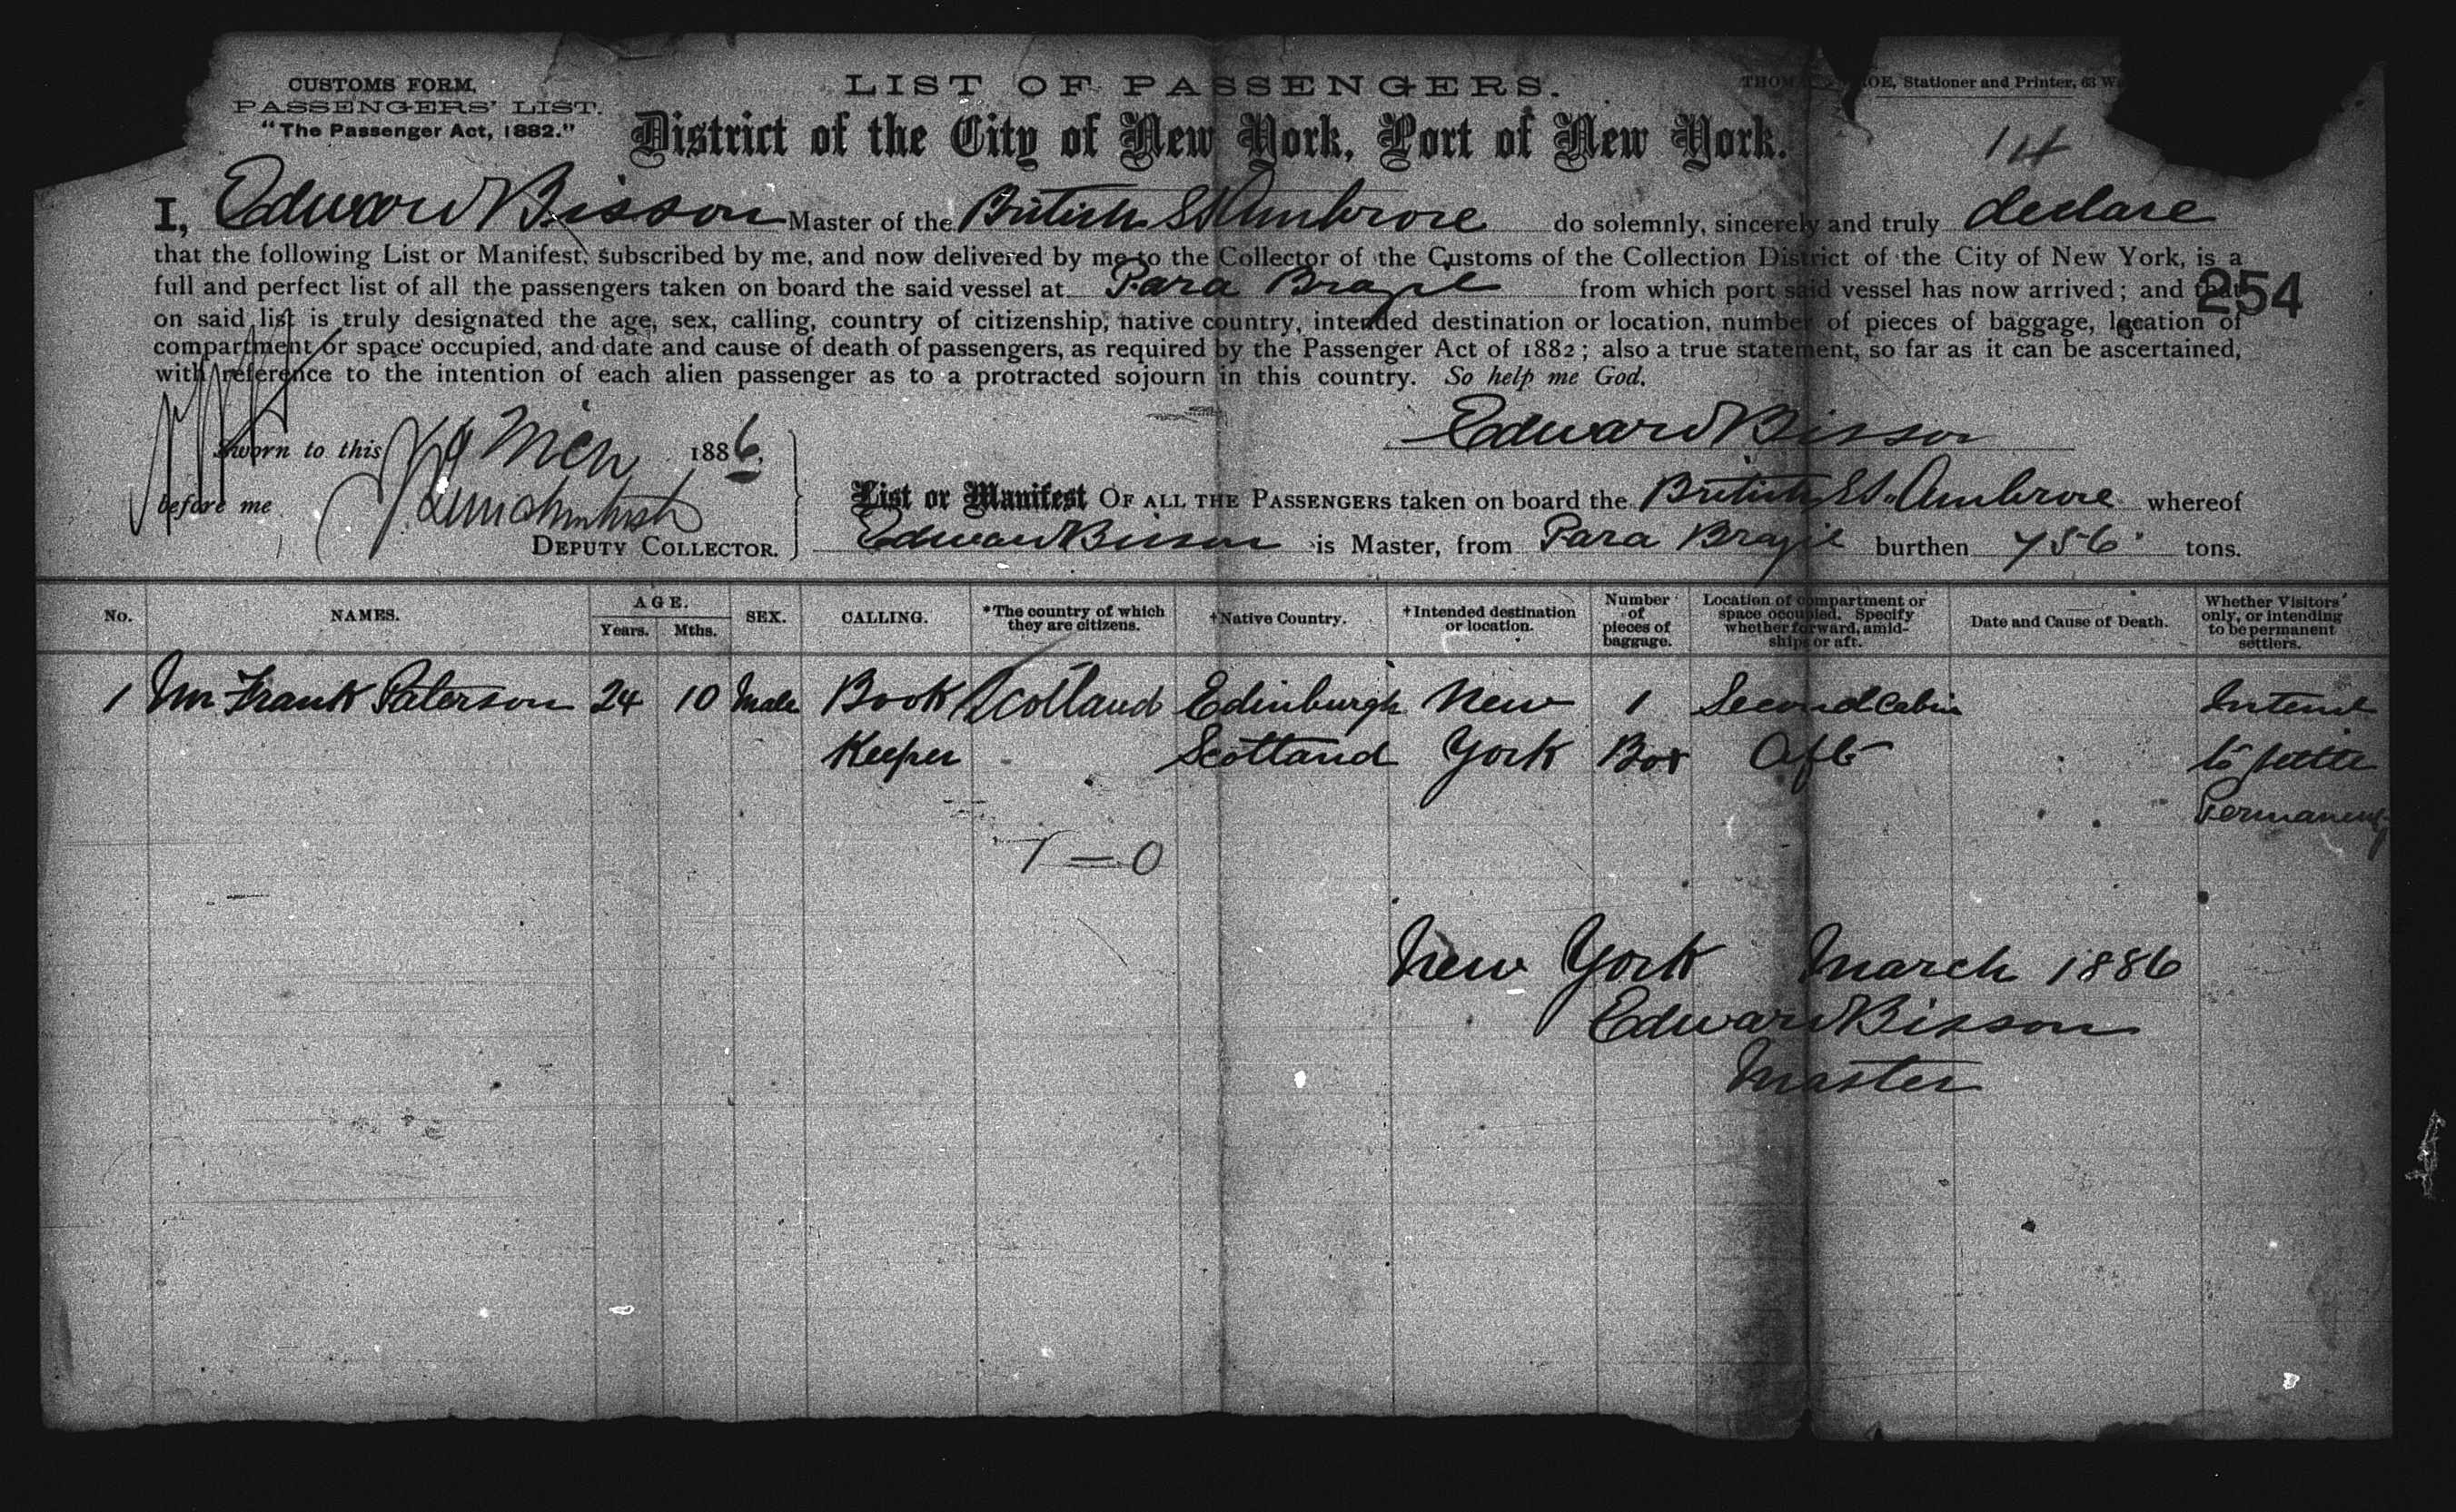 CUSTOMS FORM,
PASSENGERS' LIST.
"The Passenger Act, 1882."
LIST OF PASSENGERS.
Stationer and Printer, 63
District of the City of New York, Port of New York.
14
I, Edward Bisson Master of the British SS Ambrose do solemnly, sincerely and truly declare
that the following List or Manifest, subscribed by me, and now delivered by me to the Collector of the Customs of the Collection District of the City of New York, is a
full and perfect list of all the passengers taken on board the said vessel at Para Brazil from which port said vessel has now arrived; and that
254
on said list is truly designated the age, sex, calling, country of citizenship, native country, intended destination or location, number of pieces of baggage, location of
compartment or space occupied, and date and cause of death of passengers, as required by the Passenger Act of 1882; also a true statement, so far as it can be ascertained,
with reference to the intention of each alien passenger as to a protracted sojourn in this country. So help me God.
Edward Bisson
Sworn to this Mch 1886,
before me
DEPUTY COLLECTOR.
List or Manifest OF ALL THE PASSENGERS taken on board the British SS. Ambrose whereof
Edward Bisson is Master, from Para Brazil burthen tons.
No. NAMES. AGE. Years. Mths. SEX. CALLING. *The country of which they are citizens. †Native Country. †Intended destination or location. Number of pieces of baggage. Location of compartment or space occupied. Specify whether forward, amidships or aft. Date and Cause of Death. Whether Visitors only, or intending to be permanent settlers.
1 Mr Frank Paterson 24 10 Male Book Scotland Edinburgh New 1 Second Cabin Intend
Keeper Scotland York Box Aft to settle
Permanently
1 — 0
New York March 1886
Edward Bisson
Master